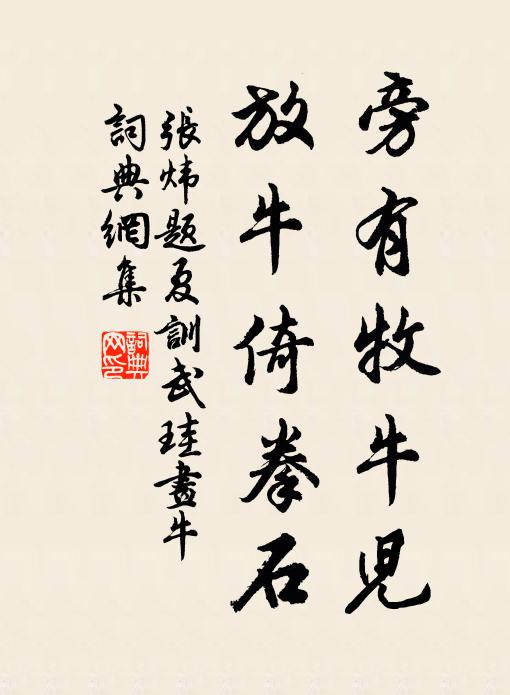 旁有牧牛兒
放牛倚拳石
張煒題夏訓武珪畫牛
詞典網集
詞典網印